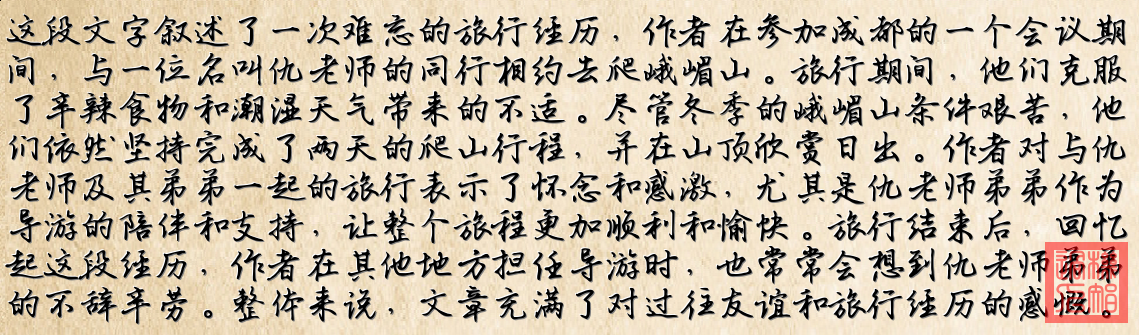 这段文字叙述了一次难忘的旅行经历，作者在参加成都的一个会议期
间，与一位名叫仇老师的同行相约去爬峨嵋山。旅行期间，他们克服
了辛辣食物和潮湿天气带来的不适。尽管冬季的峨嵋山条件艰苦，他
们依然坚持完成了两天的爬山行程，并在山顶欣赏日出。作者对与仇
老师及其弟弟一起的旅行表示了怀念和感激，尤其是仇老师弟弟作为
导游的陪伴和支持，让整个旅程更加顺利和愉快。旅行结束后，回忆
起这段经历，作者在其他地方担任导游时，也常常会想到仇老师弟弟
的不辞辛劳。整体来说，文章充满了对过往友谊和旅行经历的感慨。